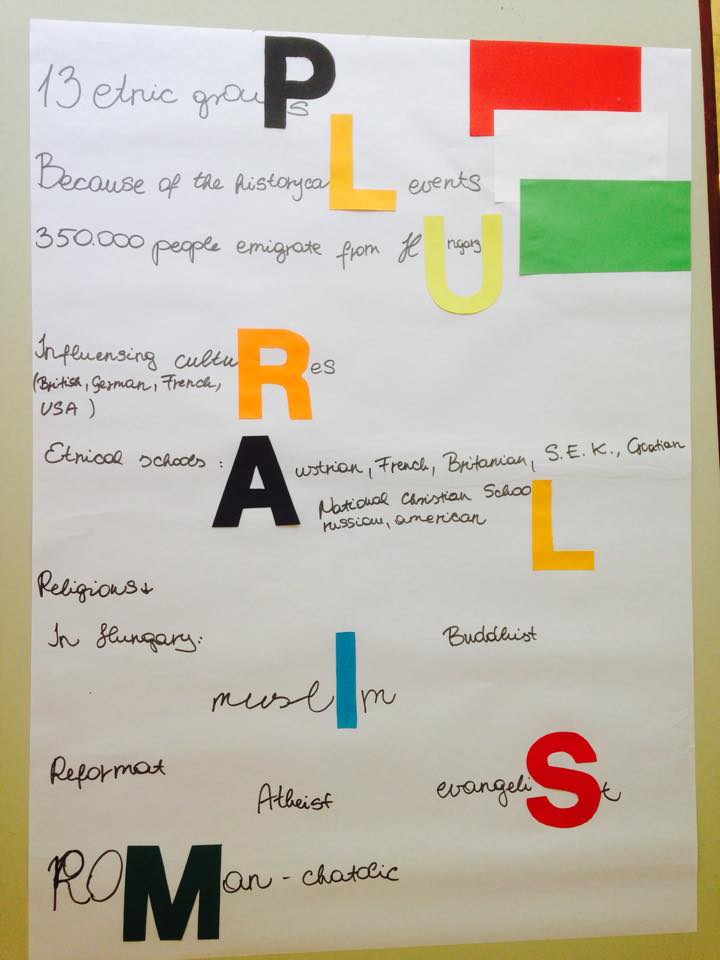 13 etnic grouPs
Because of the historycaL events
350.000 people emigrate from HUngary
Influensing cultuRes
(British, German, French,
USA )
Etnical schools : Austrian, French, Britanian, S.E.K., Croatian
National Christian SchooL
russian, american
Religions↓
In Hungary:
Buddhist
muslIm
Reformat
Atheist
evangeliSt
ROMan - chatolic